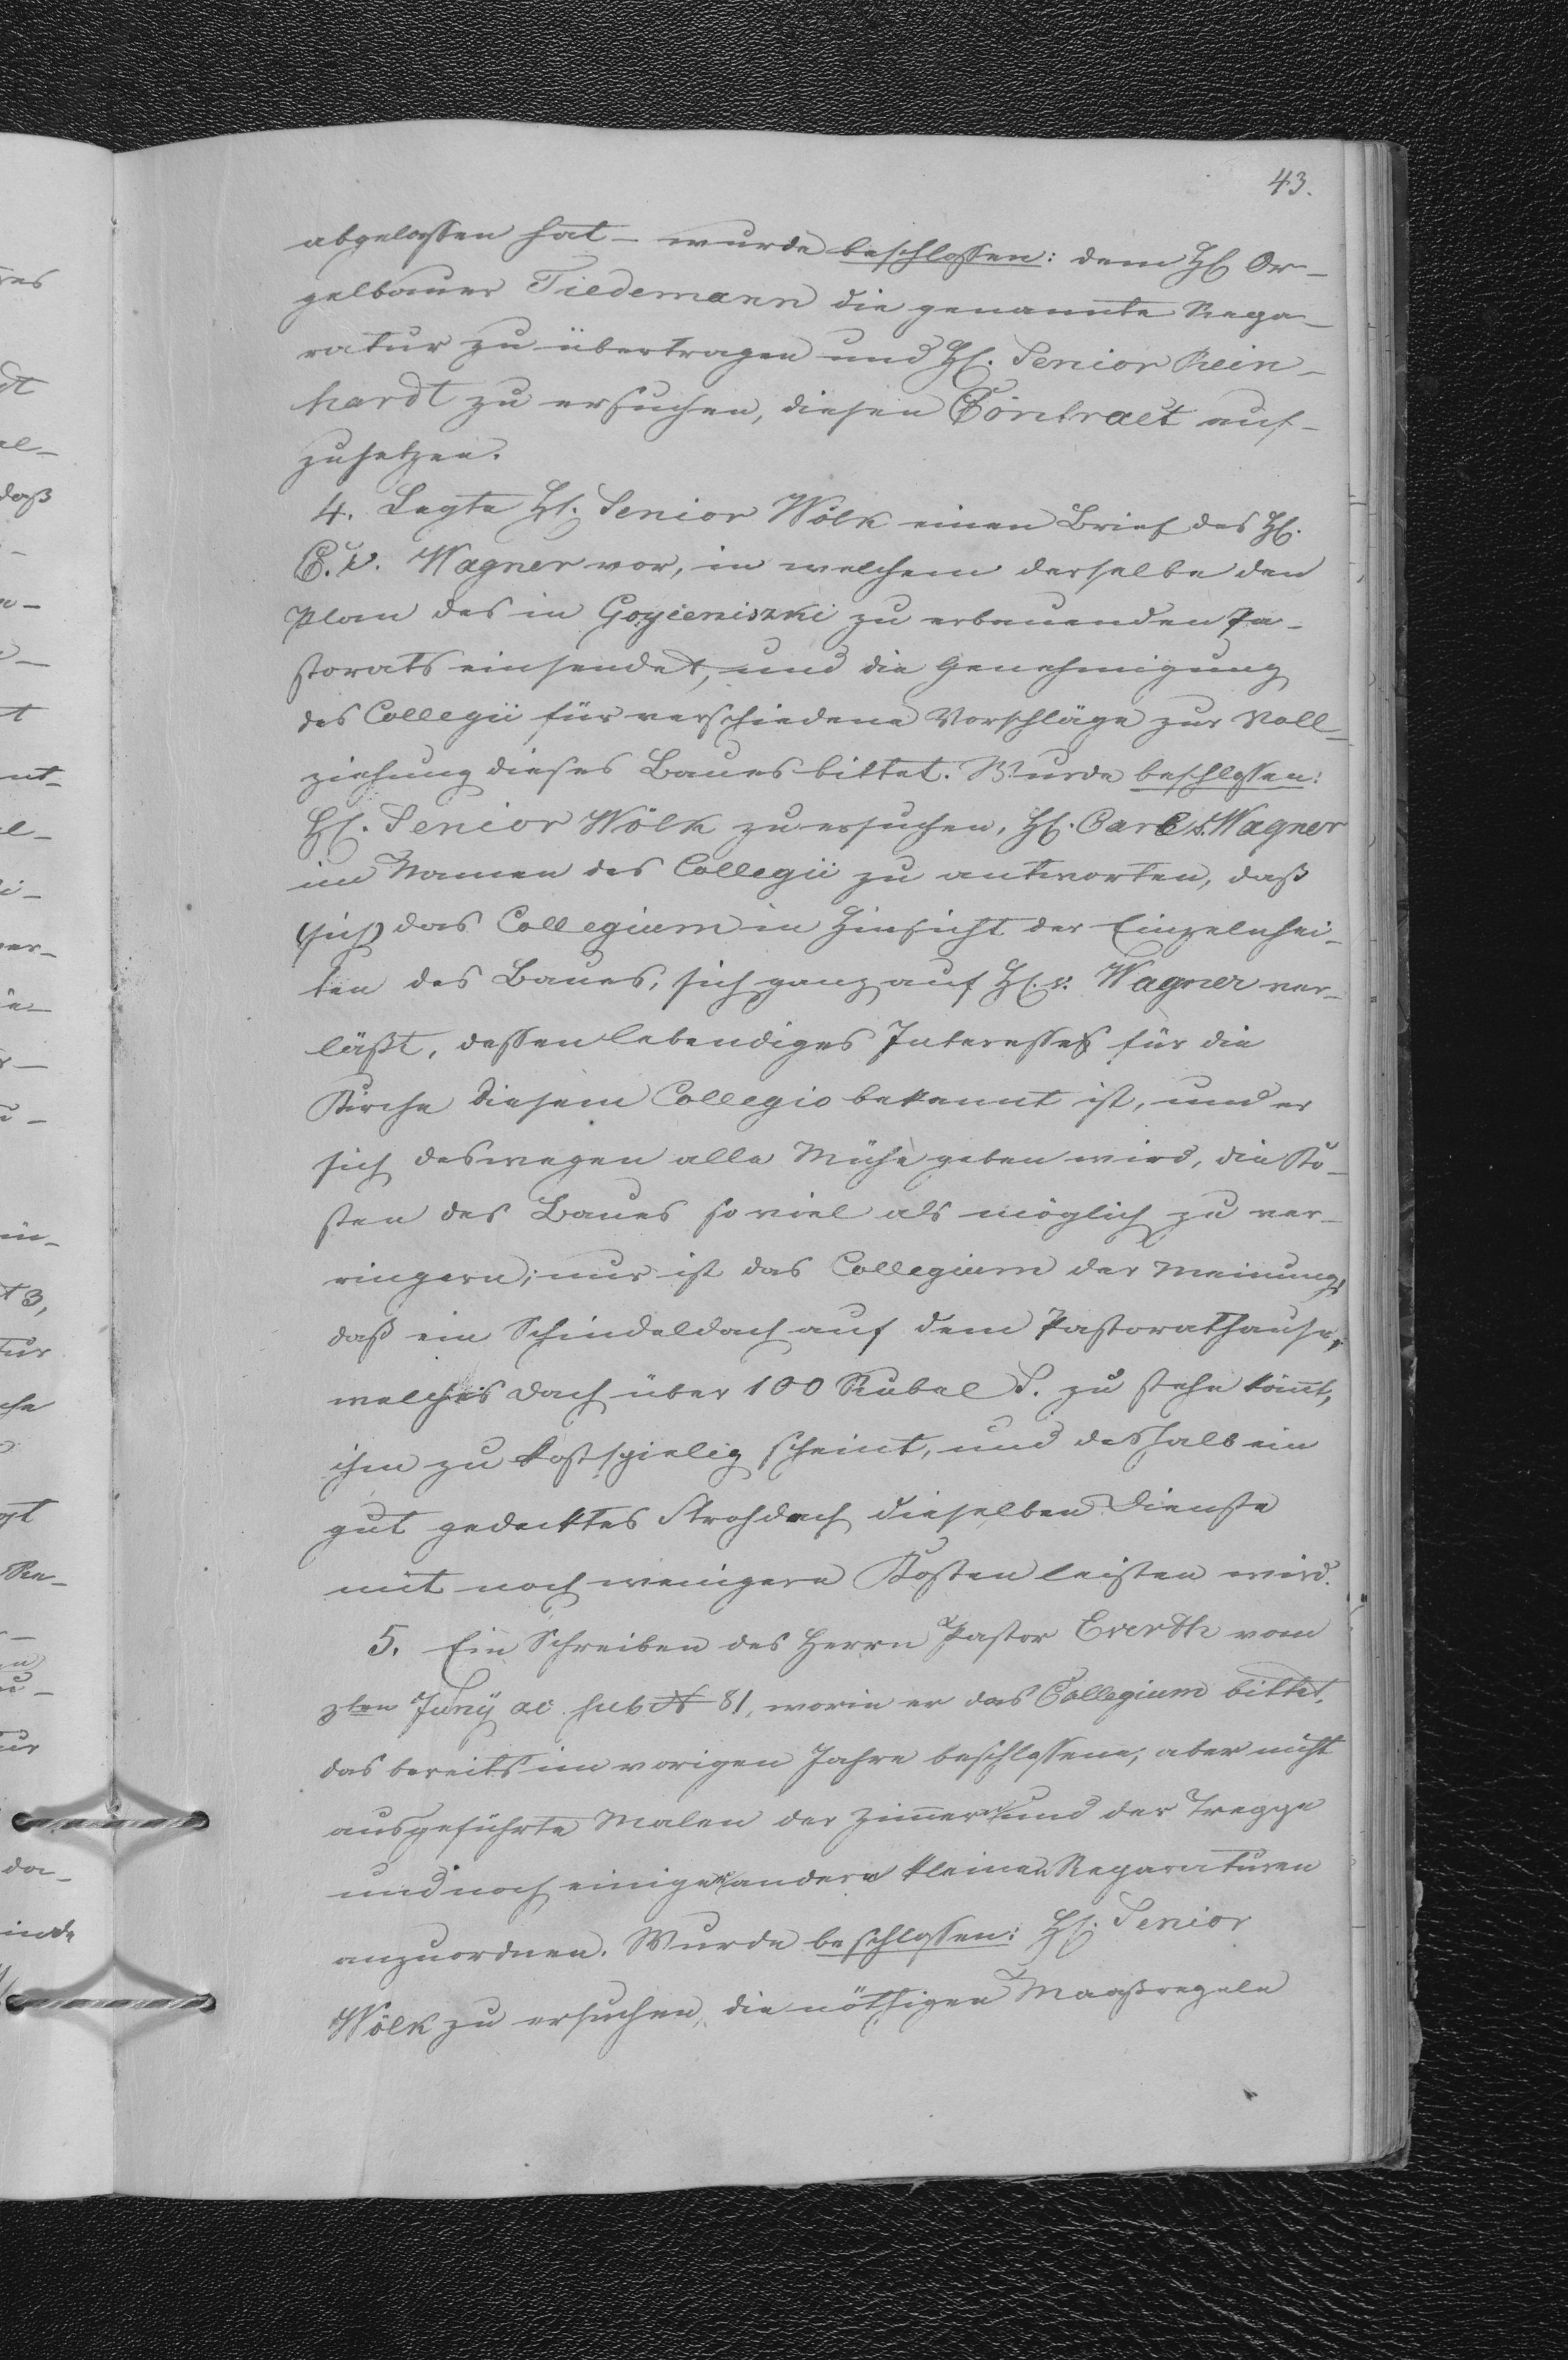 43.
abgelassen hat – wurde beschlossen: dem H. Or-
gelbauer Tiedemann die genannte Repa-
ratur zu übertragen und H. Senior Rein-
hardt zu ersuchen, diesen Contract auf-
zusetzen.
4. Legte H. Senior Wölk einen Brief des H.
C. v. Wagner vor, in welchem derselbe den
Plan des in Goyieniszki zu erbauenden Pa-
storats einsendet, und die Genehmigung
des Collegii für verschiedene Vorschläge zur Voll-
ziehung dieses Baues bittet. Wurde beschlossen:
H. Senior Wölk zu ersuchen, H. Carl v. Wagner
im Namen des Collegii zu antworten, daß
(sich) das Collegium in Hinsicht der Einzelnhei-
ten des Baues, sich ganz auf H. v. Wagner ver-
läßt, dessen lebendiges Interesse für die
Kirche diesem Collegio bekannt ist, und er
sich deswegen alle Mühe geben wird, die Ko-
sten des Baues so viel als möglich zu ver-
ringern; nur ist das Collegium der Meinung,
daß ein Schindeldach auf dem Pastorathause,
welches Dach über 100 Rubel S. zu stehn kömt,
ihm zu kostspielig scheint, und deshalb ein
gut gedecktes Strohdach dieselben Dienste
mit noch wenigern Kosten leisten wird.
5. Ein Schreiben des Herrn Pastor Everth vom
3ten Juny ac. sub № 81, worin er das Collegium bittet,
das bereits im vorigen Jahre beschlossene, aber nicht
ausgeführte Malen der Zimer und der Treppe
und noch einige andere kleine Reparaturen
anzuordnen. Wurde beschlossen: H. Senior
Wölk zu ersuchen, die nöthigen Maaßregeln